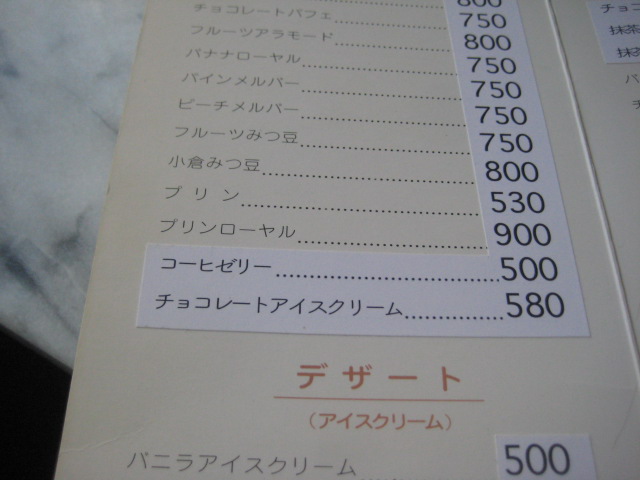 800
チョコレートパフェ 750
フルーツアラモード 800
バナナローヤル 750
パインメルバー 750
ピーチメルバー 750
フルーツみつ豆 750
小倉みつ豆 800
プリン 530
プリンローヤル 900
コーヒゼリー 500
チョコレートアイスクリーム 580
デザート
(アイスクリーム)
バニラアイスクリーム 500
チョコ
抹茶
抹茶